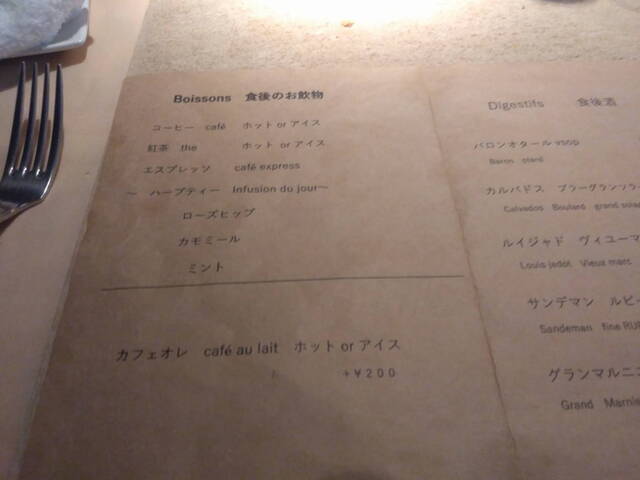 Boissons 食後のお飲物
コーヒー café ホット or アイス
紅茶 the ホット or アイス
エスプレッソ café express
～ ハーブティー Infusion du jour～
ローズヒップ
カモミール
ミント
カフェオレ café au lait ホット or アイス
+¥200
Digestifs 食後酒
バロンオタール VSOP
Baron otard
カルバドス ブラーグランソラ
Calvados Boulard grand sola
ルイジャド ヴィユーマ
Louis jadot Vieux marc
サンデマン ルビ
Sandeman fine RU
グランマルニ
Grand Marni